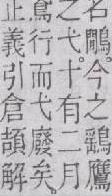 名鷳。今之鷂鷹
之弋。十有二月
鳶行而弋廢矣。
正義引倉頡解